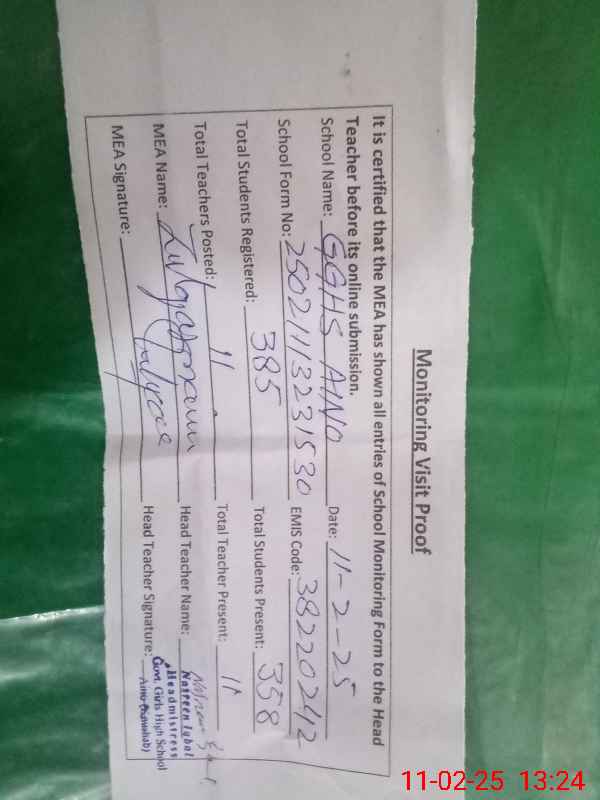 Monitoring Visit Proof
It is certified that the MEA has shown all entries of School Monitoring Form to the Head
Teacher before its online submission.
School Name: GGHS AINO Date: 11-2-25
School Form No: 25021113231530 EMIS Code: 38220242
Total Students Registered: 385 Total Students Present: 358
Total Teachers Posted: 11 Total Teacher Present: 11
MEA Name: Head Teacher Name:
MEA Signature: Head Teacher Signature:
Nasreen Iqbal
Headmistress
Govt. Girls High School
Aino (Khushab)
11-02-25 13:24